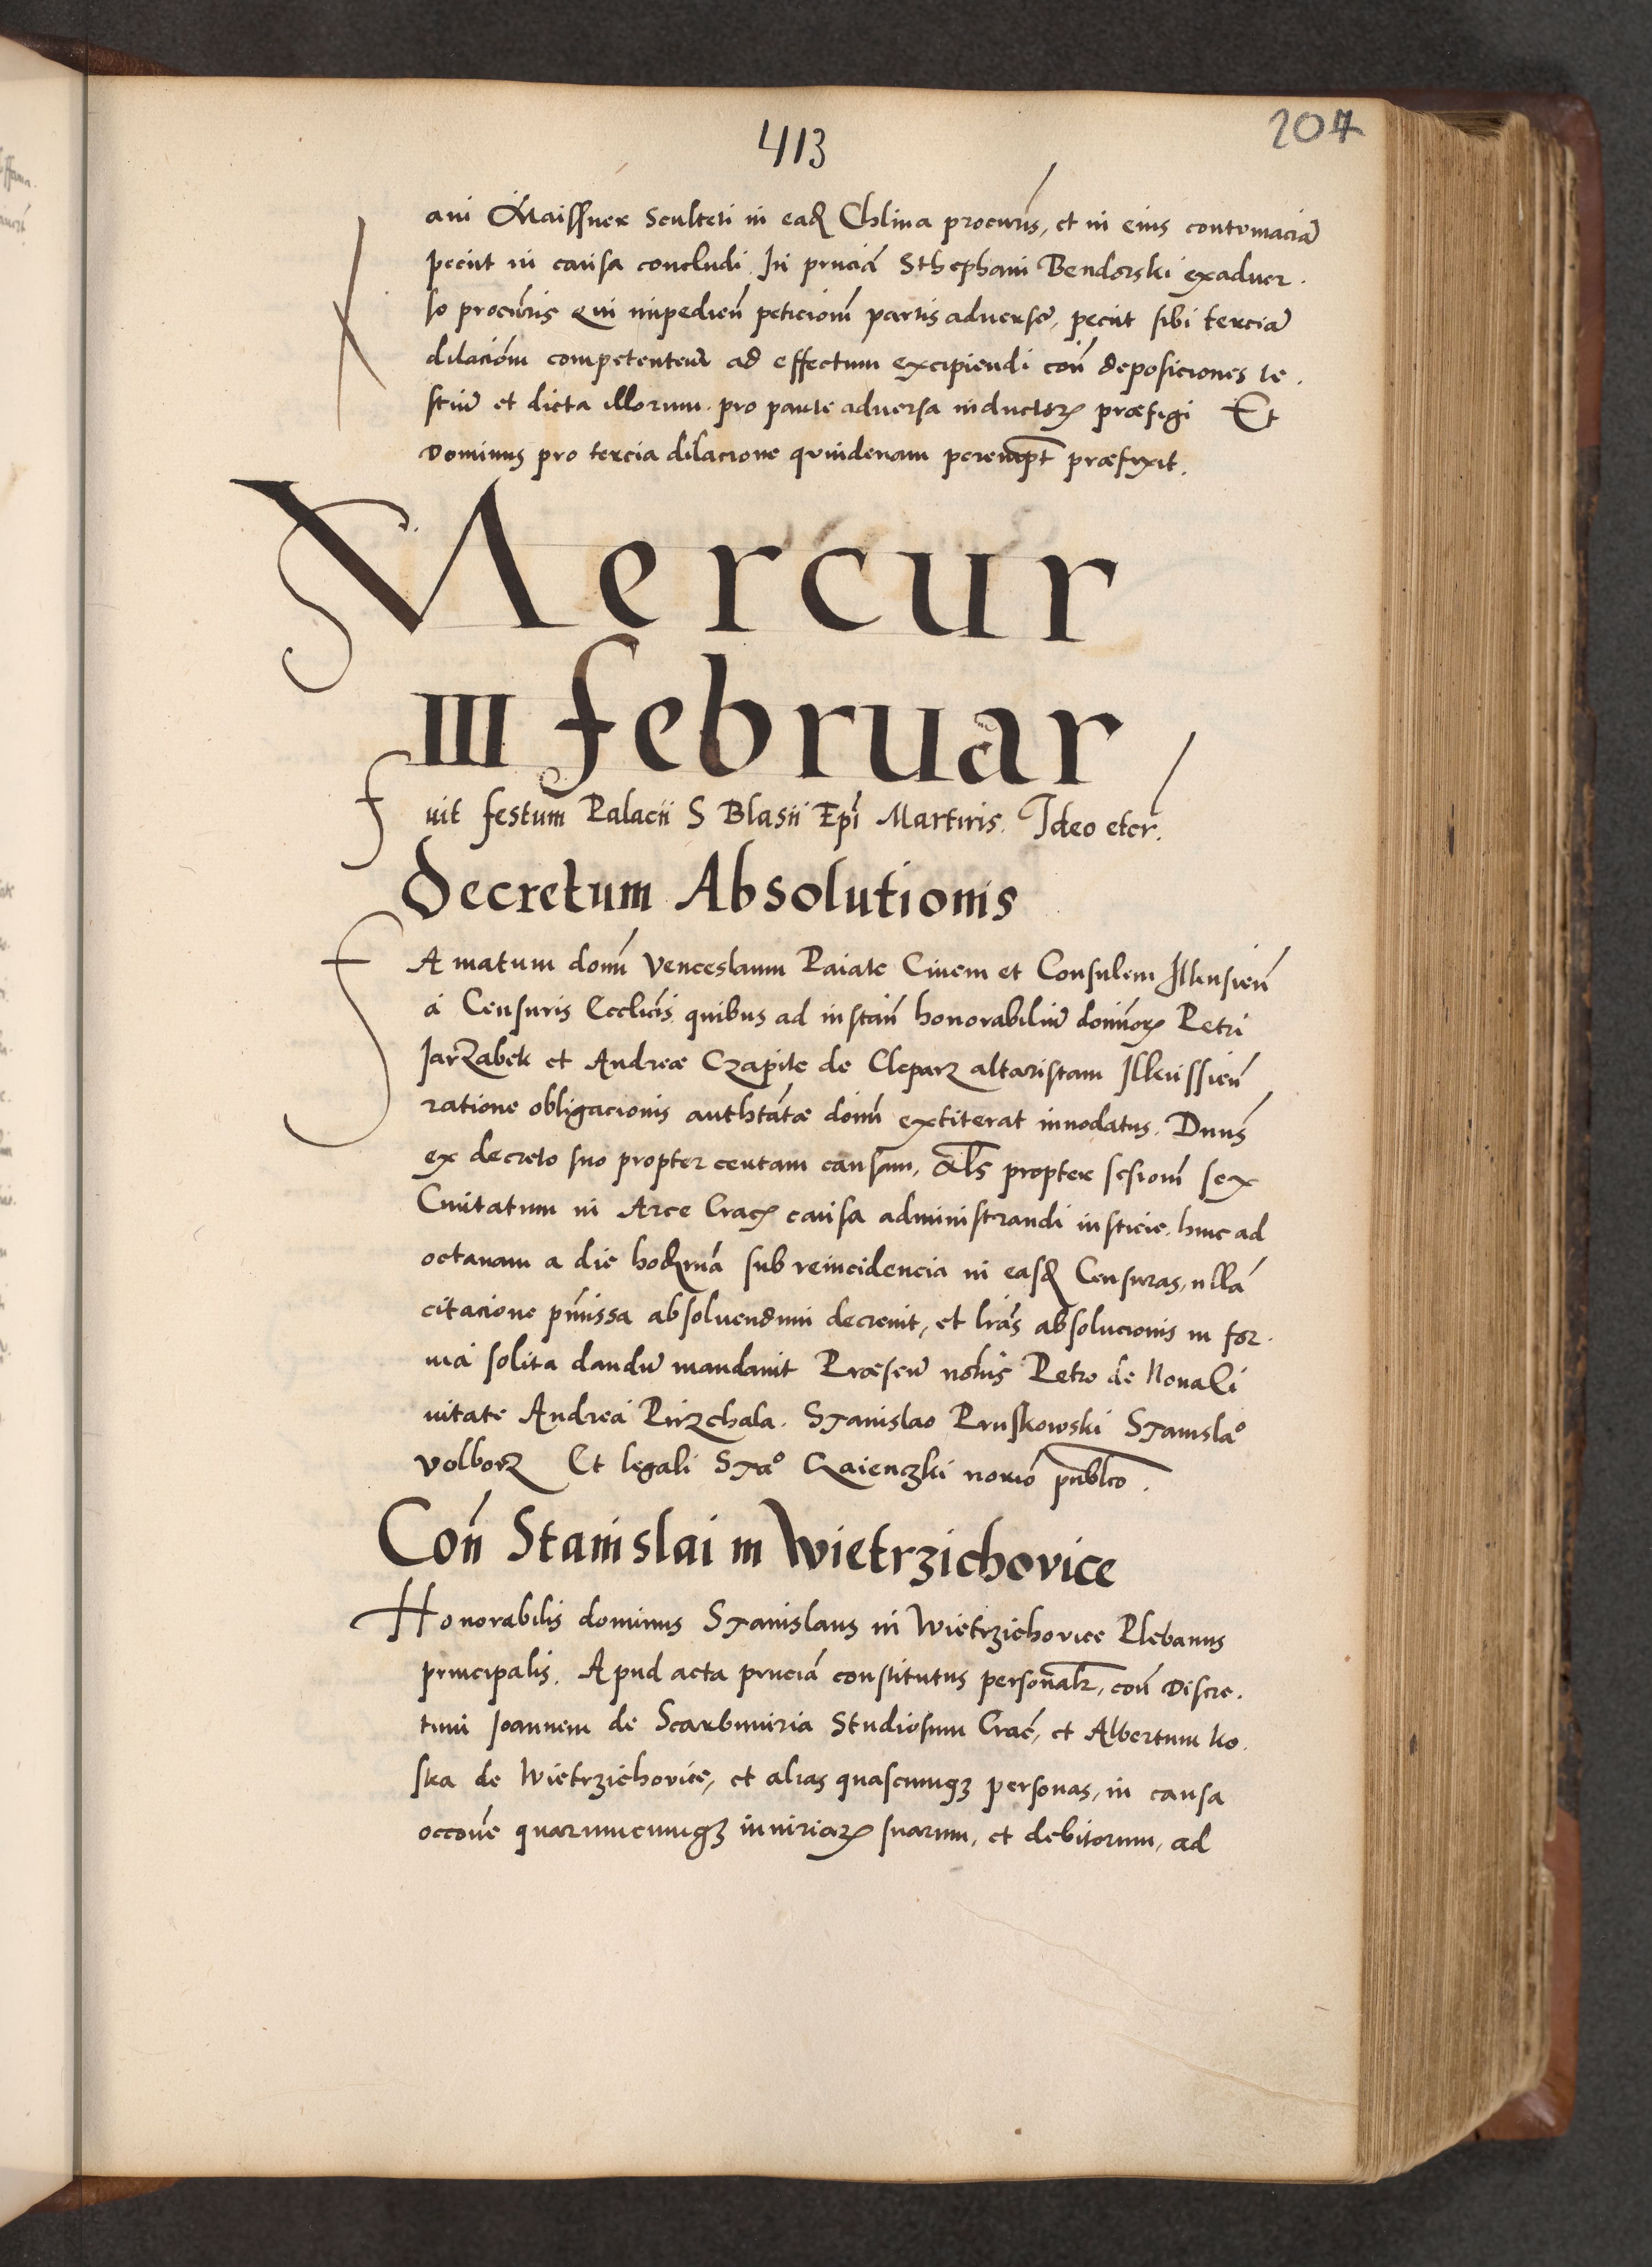 413
207
ani Maissner Sculteti in ead Chlina procuris, et in eius contumaciā
peciit in causa concludi In pnciā Sthephani Bendorski exaduer.
so procuris Qui impedieñ peticionm̄ partis aduerse, peciit sibi terciā
dilaciom̄ competentem ad effectum excipiendi con̄ deposiciones te.
stiū et dicta illorum pro parte aduersa inductorꝝ præfigi Et
Dominus pro tercia dilacione quindenam perempt̄ præfixit.
Mercur
III februar
fuit festum Palacii S Blasii Epi Martiris. Ideo etcr.
Decretum Absolutionis
Famatum domn̄ Venceslaum Paiate Ciuem et Consulem Illkusieñ
á Censuris Eccliciś quibus ad instan̄ honorabiliū dominoꝝ Petri
Jarzabek et Andreæ Czapite de Cleparz altaristam Illkussieñ
ratione obligacionis authtatæ domn̄ extiterat innodatus. Dnus
ex decreto suo propter centam causam, als propter sesionm̄ sex
Ciuitatum in Arce Cracꝝ causa administrandi iusticie. hinc ad
octauam a die hodrná sub reincidencia in easd Censuras, nllā
citacione pmissa absoluendum decreuit, et lrás absolucionis in for.
má solita dandū mandauit Præsen̄ nobis Petro de Nouaci
uitate Andreá Pirzchala. Stanislao Pruskowski Stanislao
volborz Et legali Stao Czaienczki norio publco.
Con̄ Stanislai in Wietrzichovice
Honorabilis dominus Stanislaus in Wietrzichovice Plebanus
principalis. Apud acta pnciā constitutus personalr, con̄ Discre.
tum Joannem de Scarbimiria Studiosum Crac, et Albertum ko.
ska de Wietrzichovice, et alias quascumqꝫ personas, in causa
occone quarumcumqꝫ iniuriarꝝ suarum, et debitorum, ad